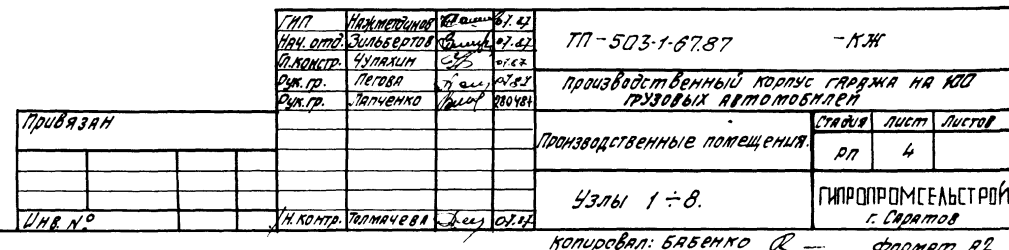 ГИП Нажметдинов 07.87
Нач. отд. Зильбертов 07.87
Гл. констр. Чулахин 07.87
Рук. гр. Пегова 07.87
Рук. гр. Лапченко 280487
ТП-503-1-67.87 -КЖ
Производственный корпус гаража на 100
грузовых автомобилей
Привязан
Производственные помещения.
Стадия Лист Листов
РП 4
Узлы 1÷8.
ГИПРОПРОМСЕЛЬСТРОЙ
г. Саратов
Инв. №
Н. контр. Толмачева 07.87
Копировал: Бабенко Формат А2